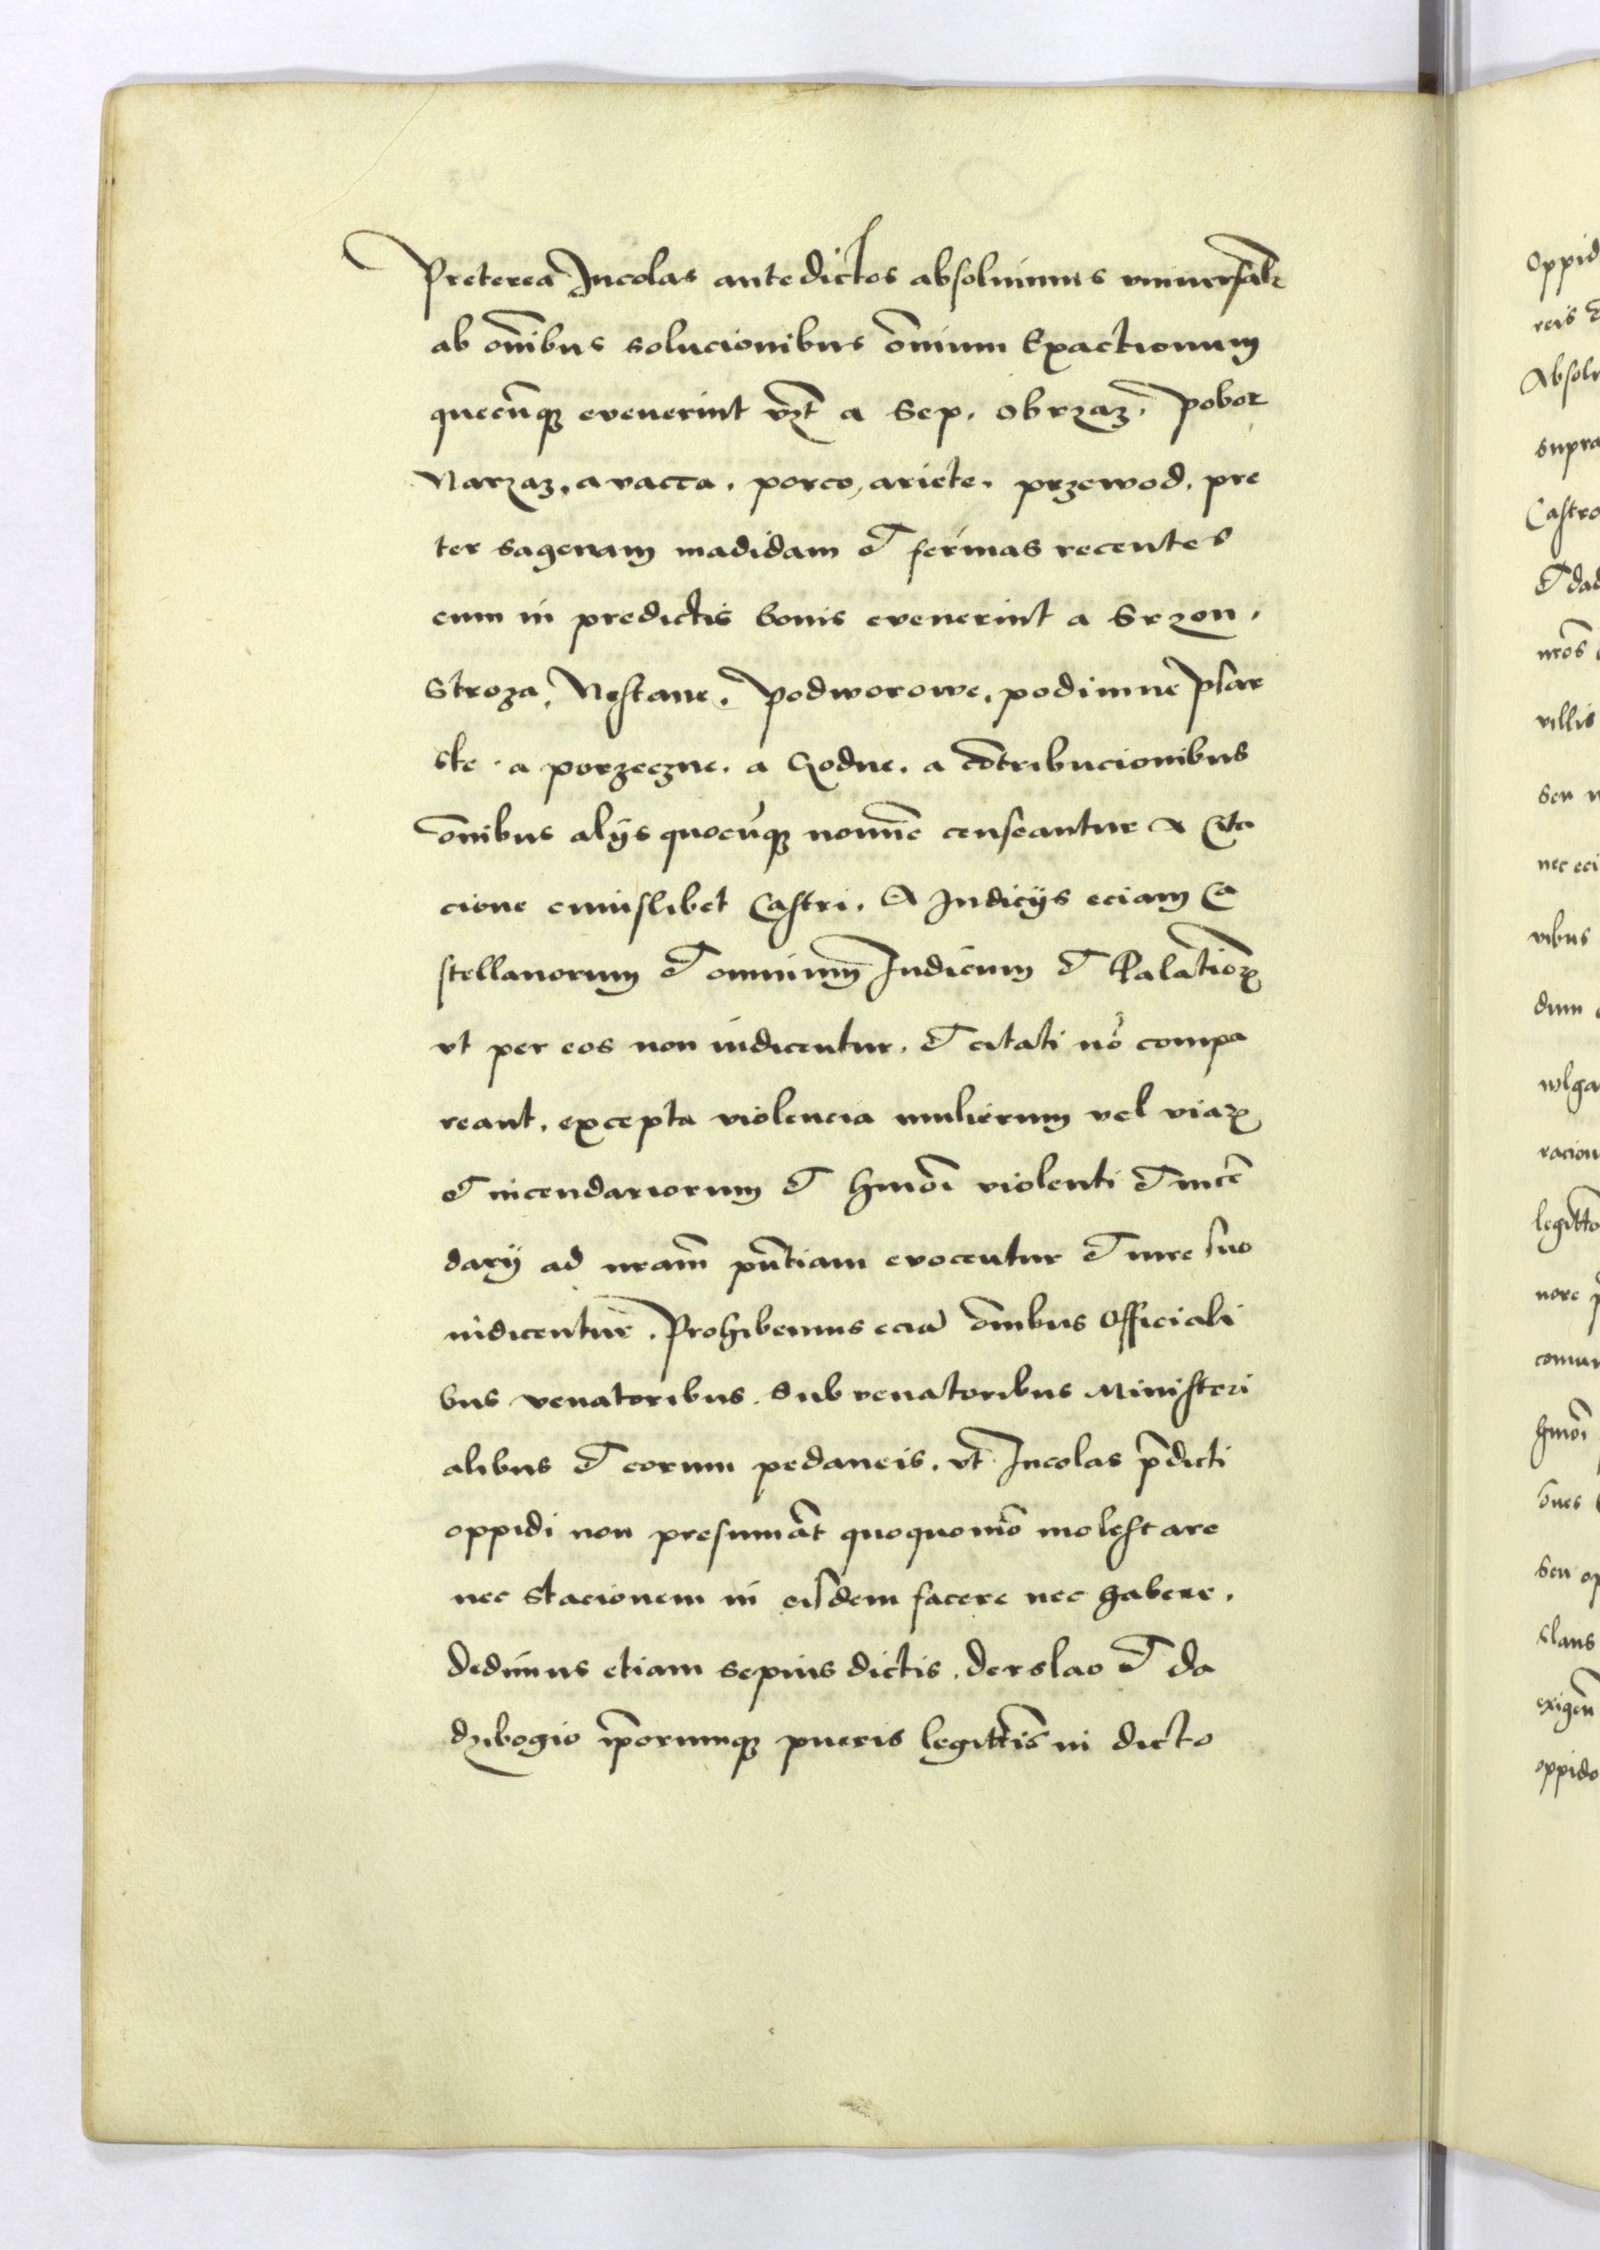 Preterea Incolas antedictos absoluimus vniuersalr
ab om̄ibus solucionibus om̄ium Exactionum
quecūq; evenerint vz̄t a Sep. obrzaz. pobor
Narzaz. a vacca. porco, ariete. przewod. pre
ter sagenam madidam et ferinas recentes
cum in predictis bonis evenerint a Srzon.
Stroza. Nestane. podworowe. podimne psar
ske. a porzeczne. a Godne. a cōtribucionibus
ōnibus alijs quocūq; nomīe censeantur A Cita
cione cuiuslibet Castri. A Iudicijs eciam Ca
stellanorum et omnium Iudicum et Palatior̄
vt per eos non iudicentur. et citati nō compa
reant. excepta violencia mulierum vel viar̄
et incendariorum et hmōi violenti et incē
darij ad nr̄am pn̄tiam evocentur et iure suo
iudicentur. Prohibemus eciā ōmbus Officiali
bus venatoribus. Subvenatoribus Ministeri
alibus et eorum pedaneis. vt Incolas p̄dicti
oppidi non presumāt quoquomō molestare
nec stacionem in eisdem facere nec habere.
dedimus etiam sepius dictis. derslao et da
dzibogio ip̄orumq; pueris legittīs in dicto
Oppid
reis
Absolu
supra
Castro
et dad
nr̄os
villis
seu
nec eci
vibus
dum
wlga
racion
legitto
nore
comun
hmōi
seu op
slaus
exigen
oppido